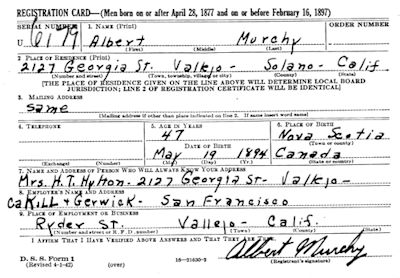 REGISTRATION CARD—(Men born on or after April 28, 1877 and on or before February 16, 1897)
SERIAL NUMBER 1. NAME (Print) ORDER NUMBER
U 6179 Albert Murchy
(First) (Middle) (Last)
2. PLACE OF RESIDENCE (Print)
2127 Georgia St. Vallejo - Solano - Calif.
(Number and street) (Town, township, village, or city) (County) (State)
[THE PLACE OF RESIDENCE GIVEN ON THE LINE ABOVE WILL DETERMINE LOCAL BOARD
JURISDICTION; LINE 2 OF REGISTRATION CERTIFICATE WILL BE IDENTICAL]
3. MAILING ADDRESS
Same
[Mailing address if other than place indicated on line 2. If same insert word same]
4. TELEPHONE 5. AGE IN YEARS 6. PLACE OF BIRTH
47 Nova Scotia
DATE OF BIRTH (Town or county)
May 19 1894 Canada
(Exchange) (Number) (Mo.) (Day) (Yr.) (State or country)
7. NAME AND ADDRESS OF PERSON WHO WILL ALWAYS KNOW YOUR ADDRESS
Mrs. H.T. Hylton. 2127 Georgia St - Vallejo -
8. EMPLOYER'S NAME AND ADDRESS
CaKill & Gerwick - San Francisco
9. PLACE OF EMPLOYMENT OR BUSINESS
Ryder St. Vallejo - Calif.
(Number and street or R. F. D. number) (Town) (County) (State)
I AFFIRM THAT I HAVE VERIFIED ABOVE ANSWERS AND THAT THEY ARE
Albert Murchy
D. S. S. Form 1
(Revised 4-1-42) (over) 16-21630-2 (Registrant's signature)